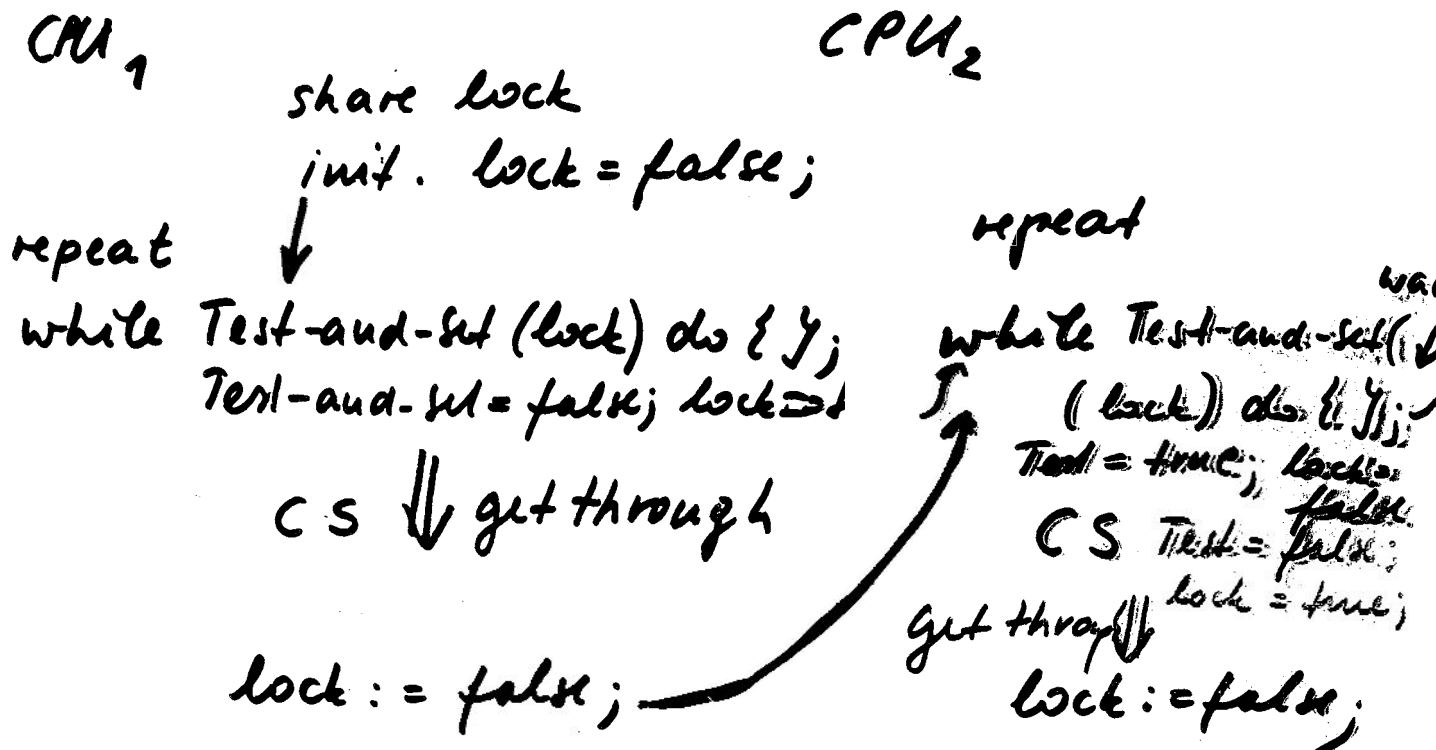 CPU1
share lock
init. lock = false;
repeat
while Test-and-set (lock) do { };
Test-and-set = false; lock =
CS ⇓ get through
lock := false;
CPU2
repeat
while Test-and-set(
(lock)) do { };
Test = true; lock =
false
CS Test = false;
lock = true;
get through
lock := false;